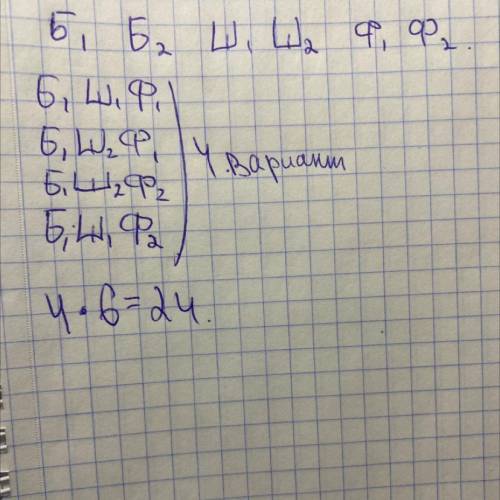 Б₁ Б₂ Ш₁ Ш₂ Ф₁ Ф₂.
Б₁ Ш₁ Ф₁
Б₁ Ш₂ Ф₁
Б₁ Ш₂ Ф₂
Б₁ Ш₁ Ф₂
4 вариант
4 · 6 = 24.